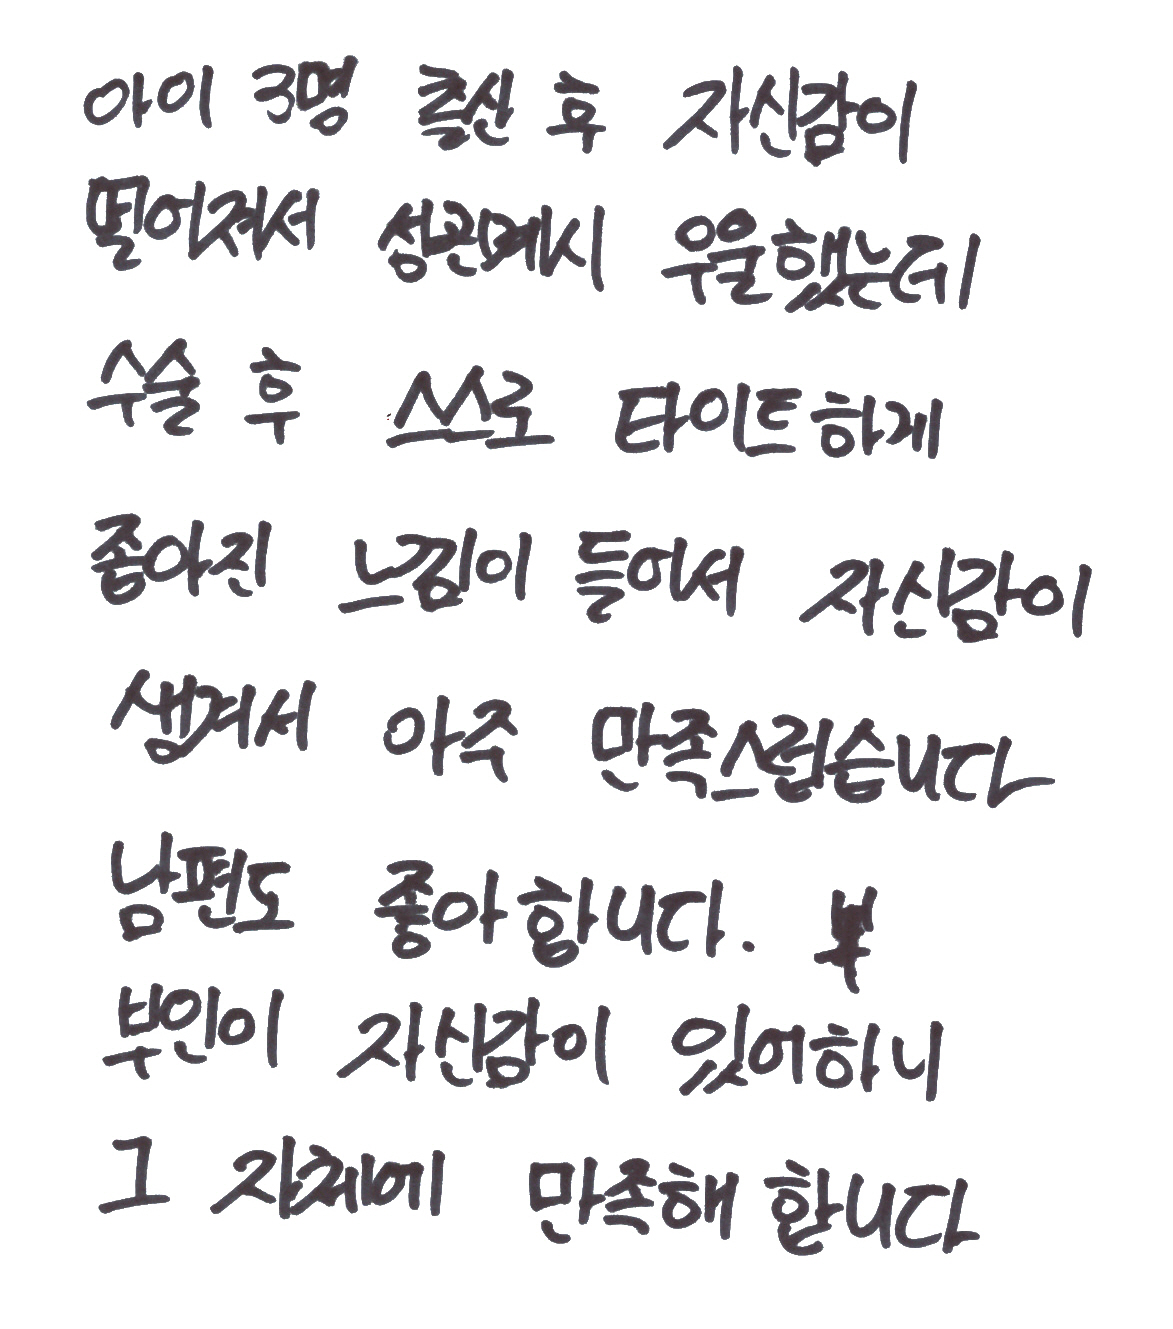 아이 3명 출산 후 자신감이
떨어져서 성관계시 우울했는데
수술 후 쓰로 타이트하게
좁아진 느낌이 들어서 자신감이
생겨서 아주 만족스럽습니다
남편도 좋아합니다.
부인이 자신감이 있어하니
그 자체에 만족해 합니다